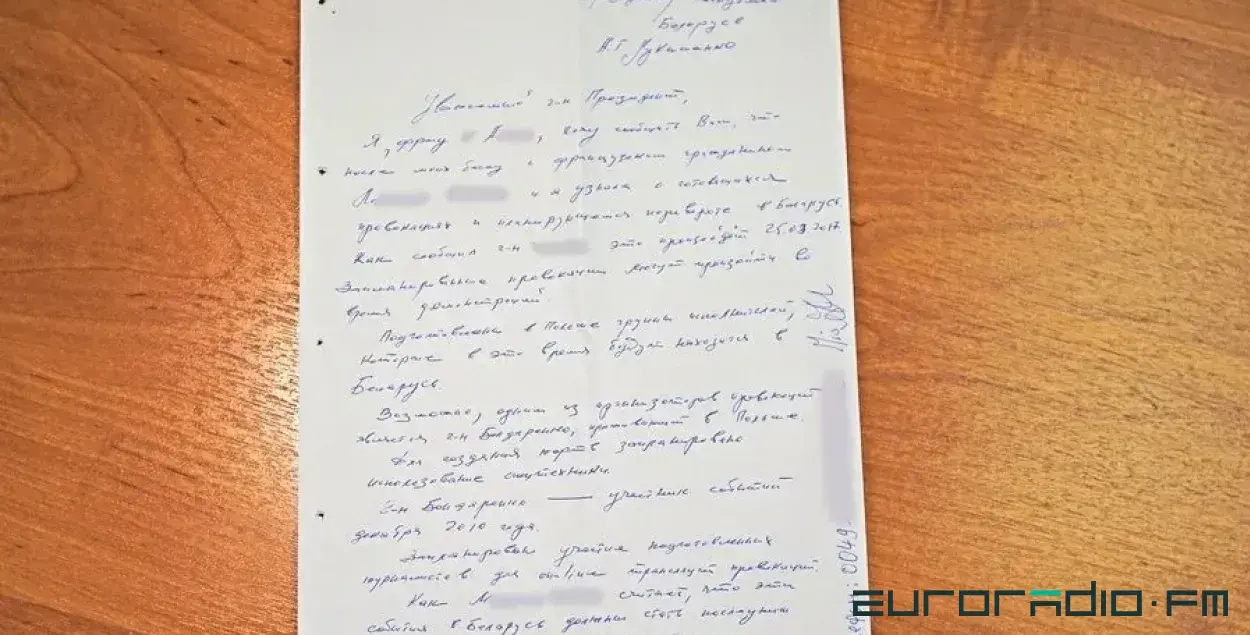 Беларусь
А.Г Лукашенко
Уважаемый г-н Президент,
Я, хочу сообщить Вам, что
после моих бесед с французским гражданином
и я узнала о готовящихся
провокациях и планирующемся перевороте в Беларусь.
Как сообщил г-н это произойдёт 25.03.2017.
Запланированные провокации могут произойти во
время демонстраций.
Подготовлены в Польше группы исполнителей,
которые в это время будут находится в
Беларусь.
Возможно, одним из организаторов провокаций
является г-н Бондаренко, проживающий в Польше.
Для создания жертв запланировано
использование спецтехники.
Г-н Бондаренко — участник событий
декабря 2010 года.
Запланировано участие подготовленных
журналистов для online трансляций провокаций.
Как считает, что эти
события в Беларусь должны стать последним
0049.
euroradio.fm